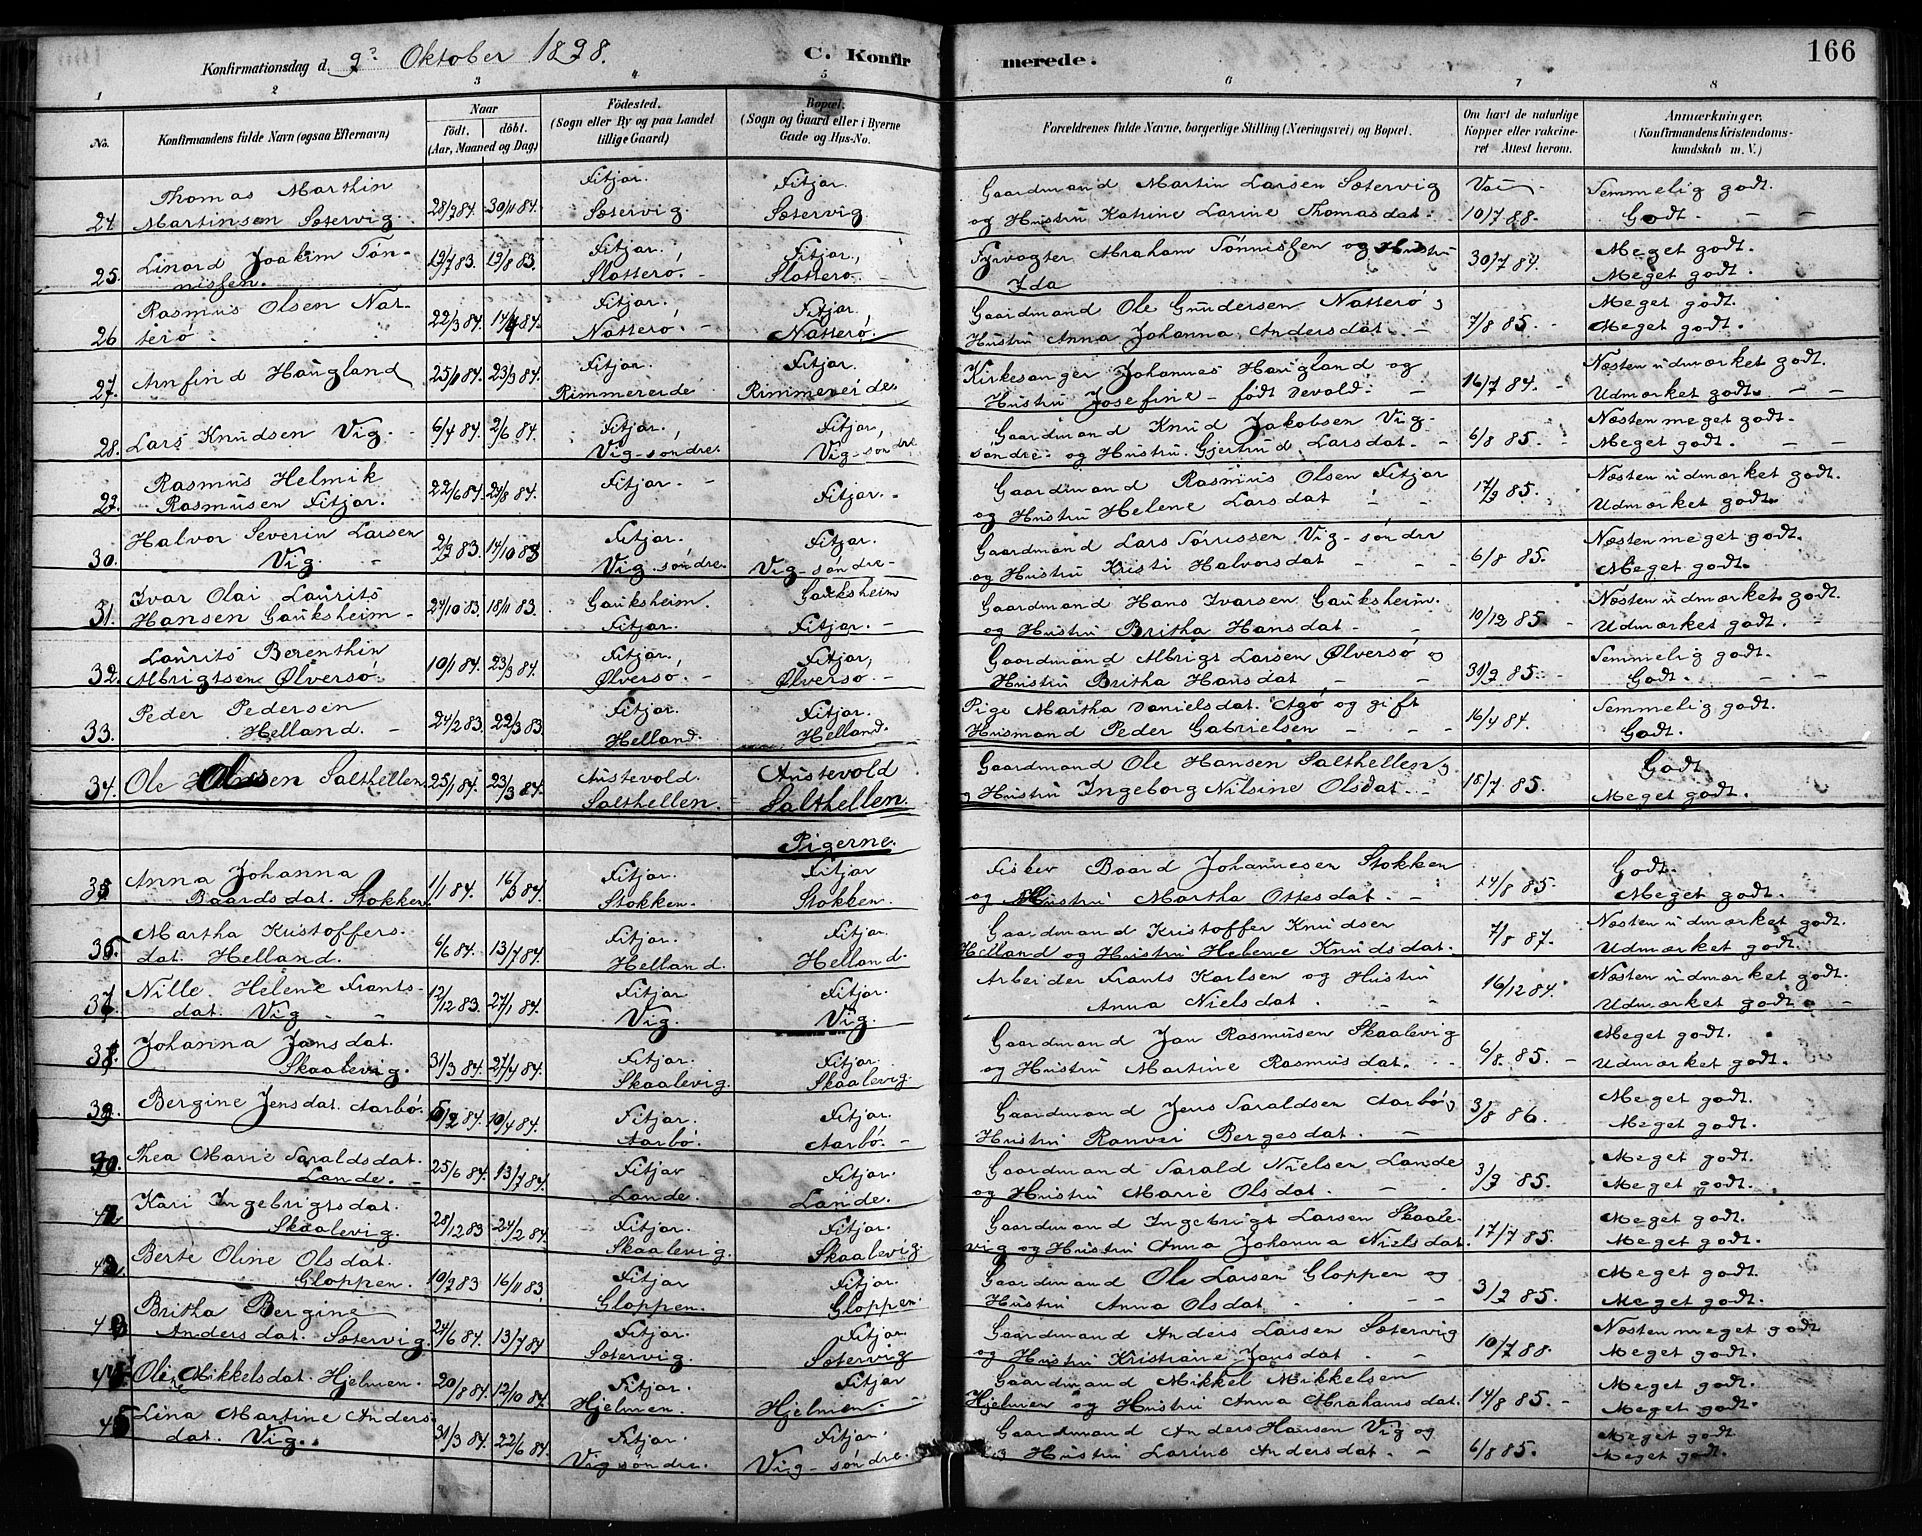 166
Konfirmationsdag d. 9de Oktober 1898.
C. Konfirmerede.
1 2 3 4 5 6 7 8
No.
Konfirmandens fulde Navn (ogsaa Efternavn)
Naar
födt. döbt.
(Aar, Maaned og Dag)
Födested.
(Sogn eller By og paa Landet
tillige Gaard)
Bopæl.
(Sogn og Gaard eller i Byerne
Gade og Hus-No.
Forældrenes fulde Navne, borgerlige Stilling (Næringsvei) og Bopæl.
Om havt de naturlige
Kopper eller vakcine-
ret Attest herom.
Anmærkninger,
(Konfirmandens Kristendoms-
kundskab m. V.)
Thomas Marthin Fitjar. Fitjar. Gaardmand Martin Larsen Sætervig Temmelig godt.
24. Martinsen Sætervig. 28/9 84. 30/11 84. Sætervig. Sætervig. og Hustru Katrine Larine Thomasdat. 10/7 88. Godt.
Linord Joakim Tön- Fitjar. Fitjar, Fyrvogter Abraham Tönnissen og Hustru Meget godt.
25. nissen. 19/7 83. 19/8 83. Slotterö. Slotterö. Ida 30/7 84. Meget godt.
Rasmus Olsen Nat- Fitjar. Fitjar. Gaardmand Ole Gundersen Natterö og Meget godt.
26 terö. 22/3 84. 14/4 84. Natterö. Natterö. Hustru Anna Johanna Andersdat. 7/8 85. Meget godt.
27. Arnfind Haugland 25/1 84. 23/3 84. Fitjar. Fitjar. Kirkesanger Johannes Haugland og 16/7 84. Næsten udmærket godt.
Rimmereide Rimmereide Hustru Josefine födt Devold. Udmærket godt.
28. Lars Knudsen Vig. 6/4 84. 2/6 84. Fitjar, Fitjar, Gaardmand Knud Jakobsen Vig- 6/8 85. Næsten meget godt.
Vig-söndre. Vig-söndre söndre og Hustru Gjertrud Larsdat. Meget godt.
Rasmus Helmik 22/6 84. 24/8 84. Fitjar. Fitjar. Gaardmand Rasmus Olsen Fitjar 17/9 85. Næsten udmærket godt.
29. Rasmusen Fitjar. og Hustru Helene Larsdat Udmærket godt.
Halvor Severin Larsen Fitjar. Fitjar. Gaardmand Lars Törrissen Vig-söndre Næsten meget godt.
30. Vig. 2/9 83. 14/10 83 Vig-söndre. Vig-söndre og Hustru Kristi Halvorsdat 6/8 85. Meget godt.
Ivar Olai Laurits Gauksheim. Gauksheim Gaardmand Hans Ivarsen Gauksheim. Næsten udmærket godt.
31. Hansen Gauksheim 27/10 83. 18/11 83. Fitjar. Fitjar. og Hustru Britha Hansdat 10/12 85. Udmærket godt.
Laurits Berenthin Fitjar. Fitjar, Gaardmand Albrigt Larsen Ølversö og Temmelig godt.
32. Albrigtsen Ølversö. 19/1 84. 23/3 84. Ølversö. Ølversö. Hustru Britha Hansdat 31/7 85. Godt.
Peder Pedersen Fitjar. Fitjar. Pige Martha Danielsdat. Agö og gift Temmelig godt.
33. Helland. 24/2 83. 22/3 83. Helland. Helland. Husmand Peder Gabrielsen 16/4 84. Godt.
34. Ole Olsen Salthellen 25/1 84. 23/3 84. Austevold. Austevold Gaardmand Ole Hansen Salthellen og 18/7 85. Godt
Salthellen. Salthellen. Hustru Ingeborg Nilsine Olsdat. Meget godt.
Pigerne.
Anna Johanna Fitjar. Fitjar Fisker Baard Johannesen Stokken Godt.
35. Baardsdat. Stokken. 1/1 84. 16/3 84. Stokken. Stokken. og Hustru Martha Ottesdat. 14/8 85. Meget godt.
Martha Kristoffers- Fitjar. Fitjar. Gaardmand Kristoffer Knudsen Næsten udmærket godt.
36. dat. Helland. 6/6 84. 13/7 84. Helland. Helland. Helland og Hustru Helene Knudsdat. 7/8 87. Udmærket godt.
Nille Helene Frants- Fitjar Fitjar. Arbeider Frants Karlsen og Hustru Næsten udmærket godt.
37. dat. Vig. 12/12 83. 27/1 84. Vig. Vig. Anna Nielsdat. 16/12 84. Udmærket godt.
Johanna Jansdat. Fitjar. Fitjar. Gaardmand Jan Rasmusen Skaalevig Meget godt.
38. Skaalevig. 31/3 84. 27/4 84. Skaalevig. Skaalevig. og Hustru Martine Rasmusdat. 6/8 85. Udmærket godt.
39. Bergine Jensdat. Aarbö. 10/2 84. 10/4 84. Fitjar. Fitjar. Gaardmand Jens Taraldsen Aarbö og 3/8 86. Meget godt.
Aarbö. Aarbö. Hustru Ranvei Bergesdat. Meget godt.
Thea Marie Taraldsdat. Fitjar Fitjar. Gaardmand Tarald Nielsen Lande Meget godt.
40. Lande. 25/6 84. 13/7 84. Lande. Lande. og Hustru Marie Olsdat. 3/9 85. Meget godt.
Kari Ingebrigtsdat. Fitjar. Fitjar. Gaardmand Ingebrigt Larsen Skaale- Meget godt.
41. Skaalevig. 28/12 83 24/2 84. Skaalevig. Skaalevig. vig og Hustru Anna Johanna Nielsdat. 17/7 85. Meget godt.
Berte Oline Olsdat. Fitjar Fitjar. Gaardmand Ole Larsen Gloppen og Meget godt.
42. Gloppen. 19/9 83 16/11 83. Gloppen. Gloppen. Hustru Anna Olsdat 3/9 85. Meget godt.
Britha Bergine Fitjar. Fitjar Gaardmand Anders Larsen Sætervig Næsten meget godt
43 Andersdat. Sætervig. 24/6 84. 13/7 84 Sætervig. Sætervig og Hustru Kristiane Jansdat. 10/7 88. Meget godt.
44. Oline Mikkelsdat. Hjelmen. 20/8 84. 12/10 84. Fitjar. Fitjar Gaardmand Mikkel Mikkelsen 14/8 85. Meget godt.
Hjelmen. Hjelmen. Hjelmen og Hustru Anna Abrahamsdat. Meget godt.
Lina Martine Anders- Fitjar. Fitjar. Gaardmand Anders Hansen Vig og Meget godt
45 dat. Vig. 31/3 84. 22/6 84. Vig söndre. Vig-söndre. Hustru Larine Andersdat. 6/8 85. Meget godt.